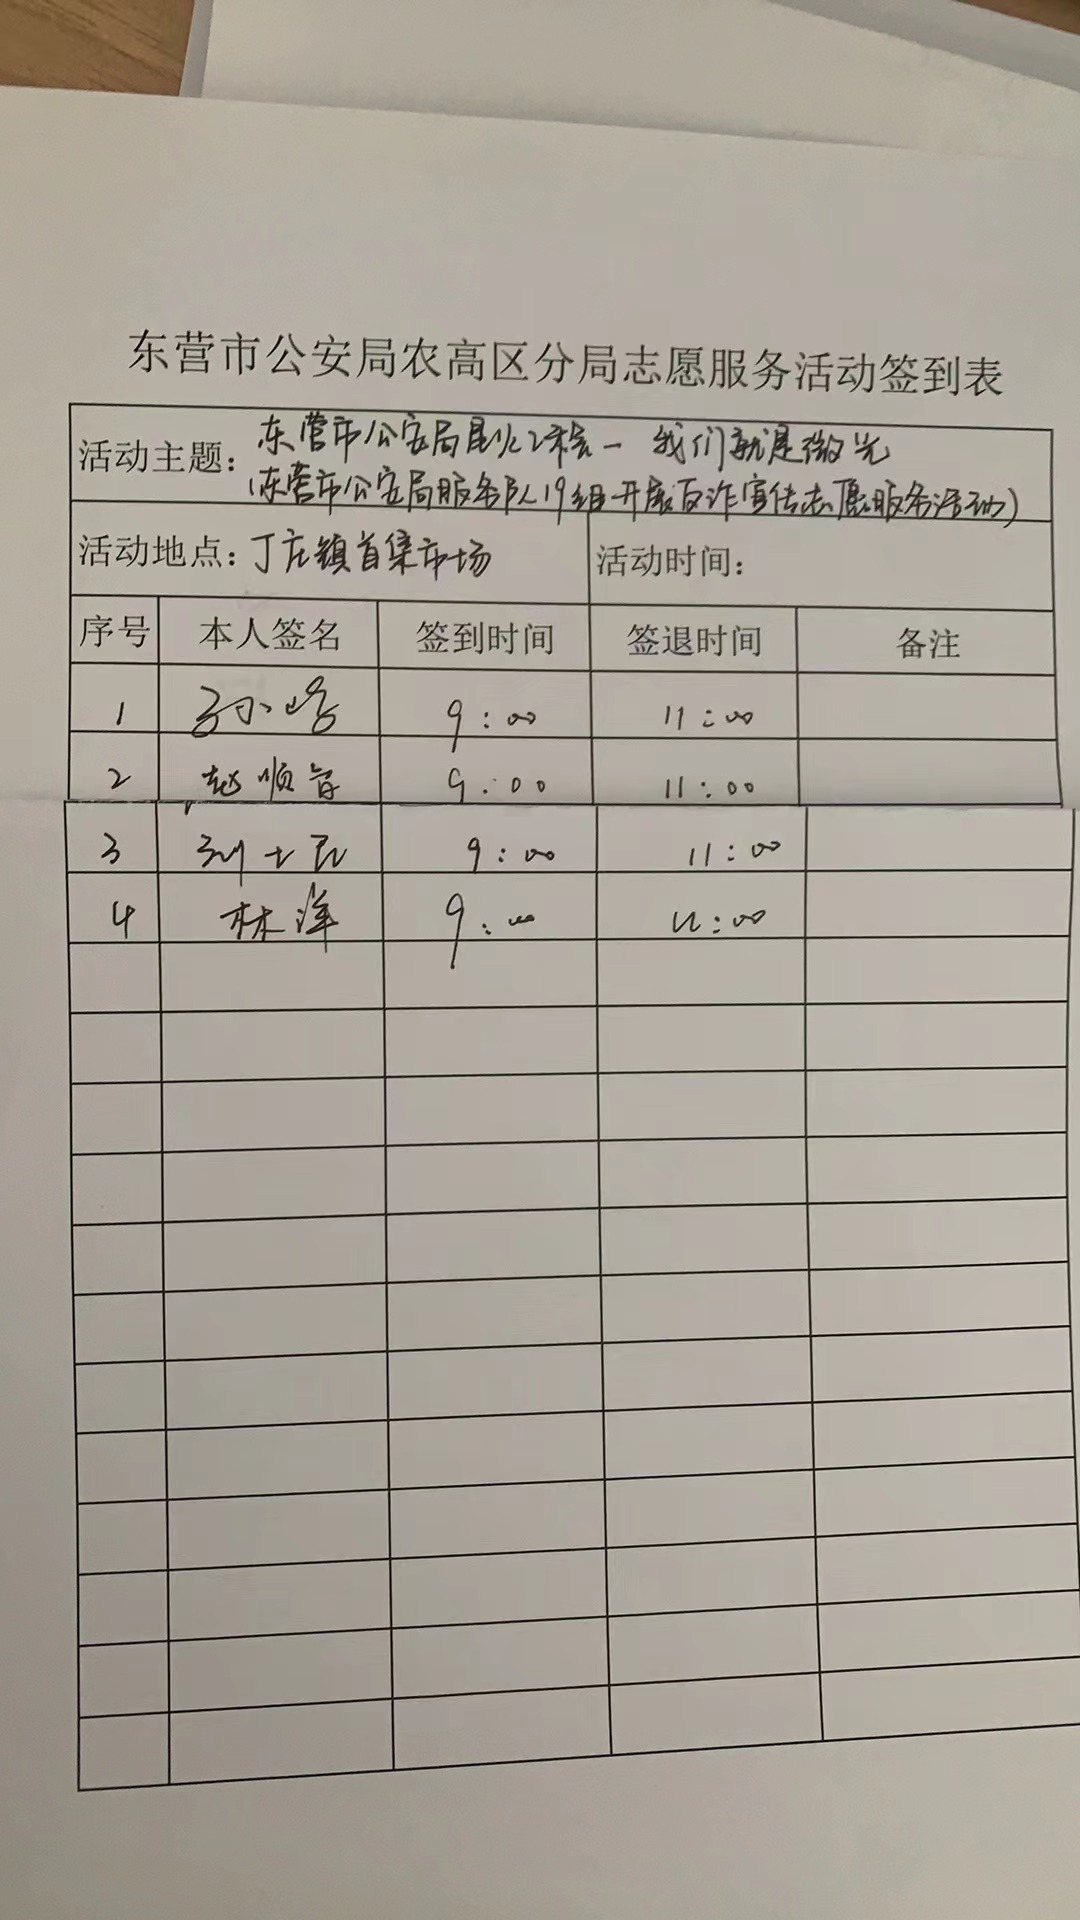 东营市公安局农高区分局志愿服务活动签到表
活动主题：东营市公安局星火2 一 我们就是微光
（东营市公安局服务队19组开展反诈宣传志愿服务活动）
活动地点：丁庄镇首集市场 活动时间：
序号 本人签名 签到时间 签退时间 备注
1 孙小 9:00 11:00
2 赵顺 9:00 11:00
3 刘士民 9:00 11:00
4 林洋 9:00 11:00